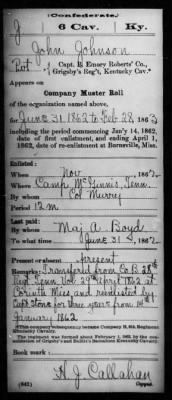 (Confederate.)
J 6 Cav. Ky.
John Johnson
Pvt, Capt. B Emery Roberts' Co.,
Grigsby's Reg't, Kentucky Cav.*
Appears on
Company Muster Roll
of the organization named above,
for June 31 1862 to Feb 28, 1863
including the period commencing Jan'y 14, 1862,
date of first enlistment, and ending April 1
1862, date of re-enlistment at Burnsville, Miss.
Enlisted:
When Nov, 1862
Where Camp McGinnis, Tenn.
By whom Col Murray
Period 12 m
Last paid:
By whom Maj A. Boyd
To what time June 31, 1862
Present or absent present
Remarks: Transferred from Co B 28th
Regt Tenn Vol 29th April 1862 at
Corinth Miss and reenlisted by
Capt Stone for three years from 14th
January 1862
†This company subsequently became Company B, 6th Regiment
Kentucky Cavalry.
Book mark:
H. J. Callahan
(642) Copyist.